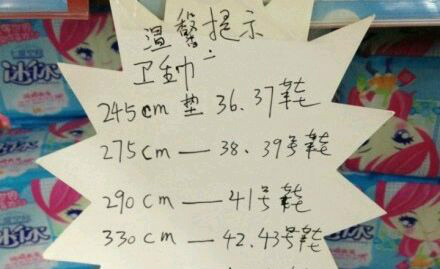 温馨提示
卫生巾:
245cm 垫 36.37鞋
275cm — 38.39号鞋
290cm — 41号鞋
330cm — 42.43号鞋
冰冰